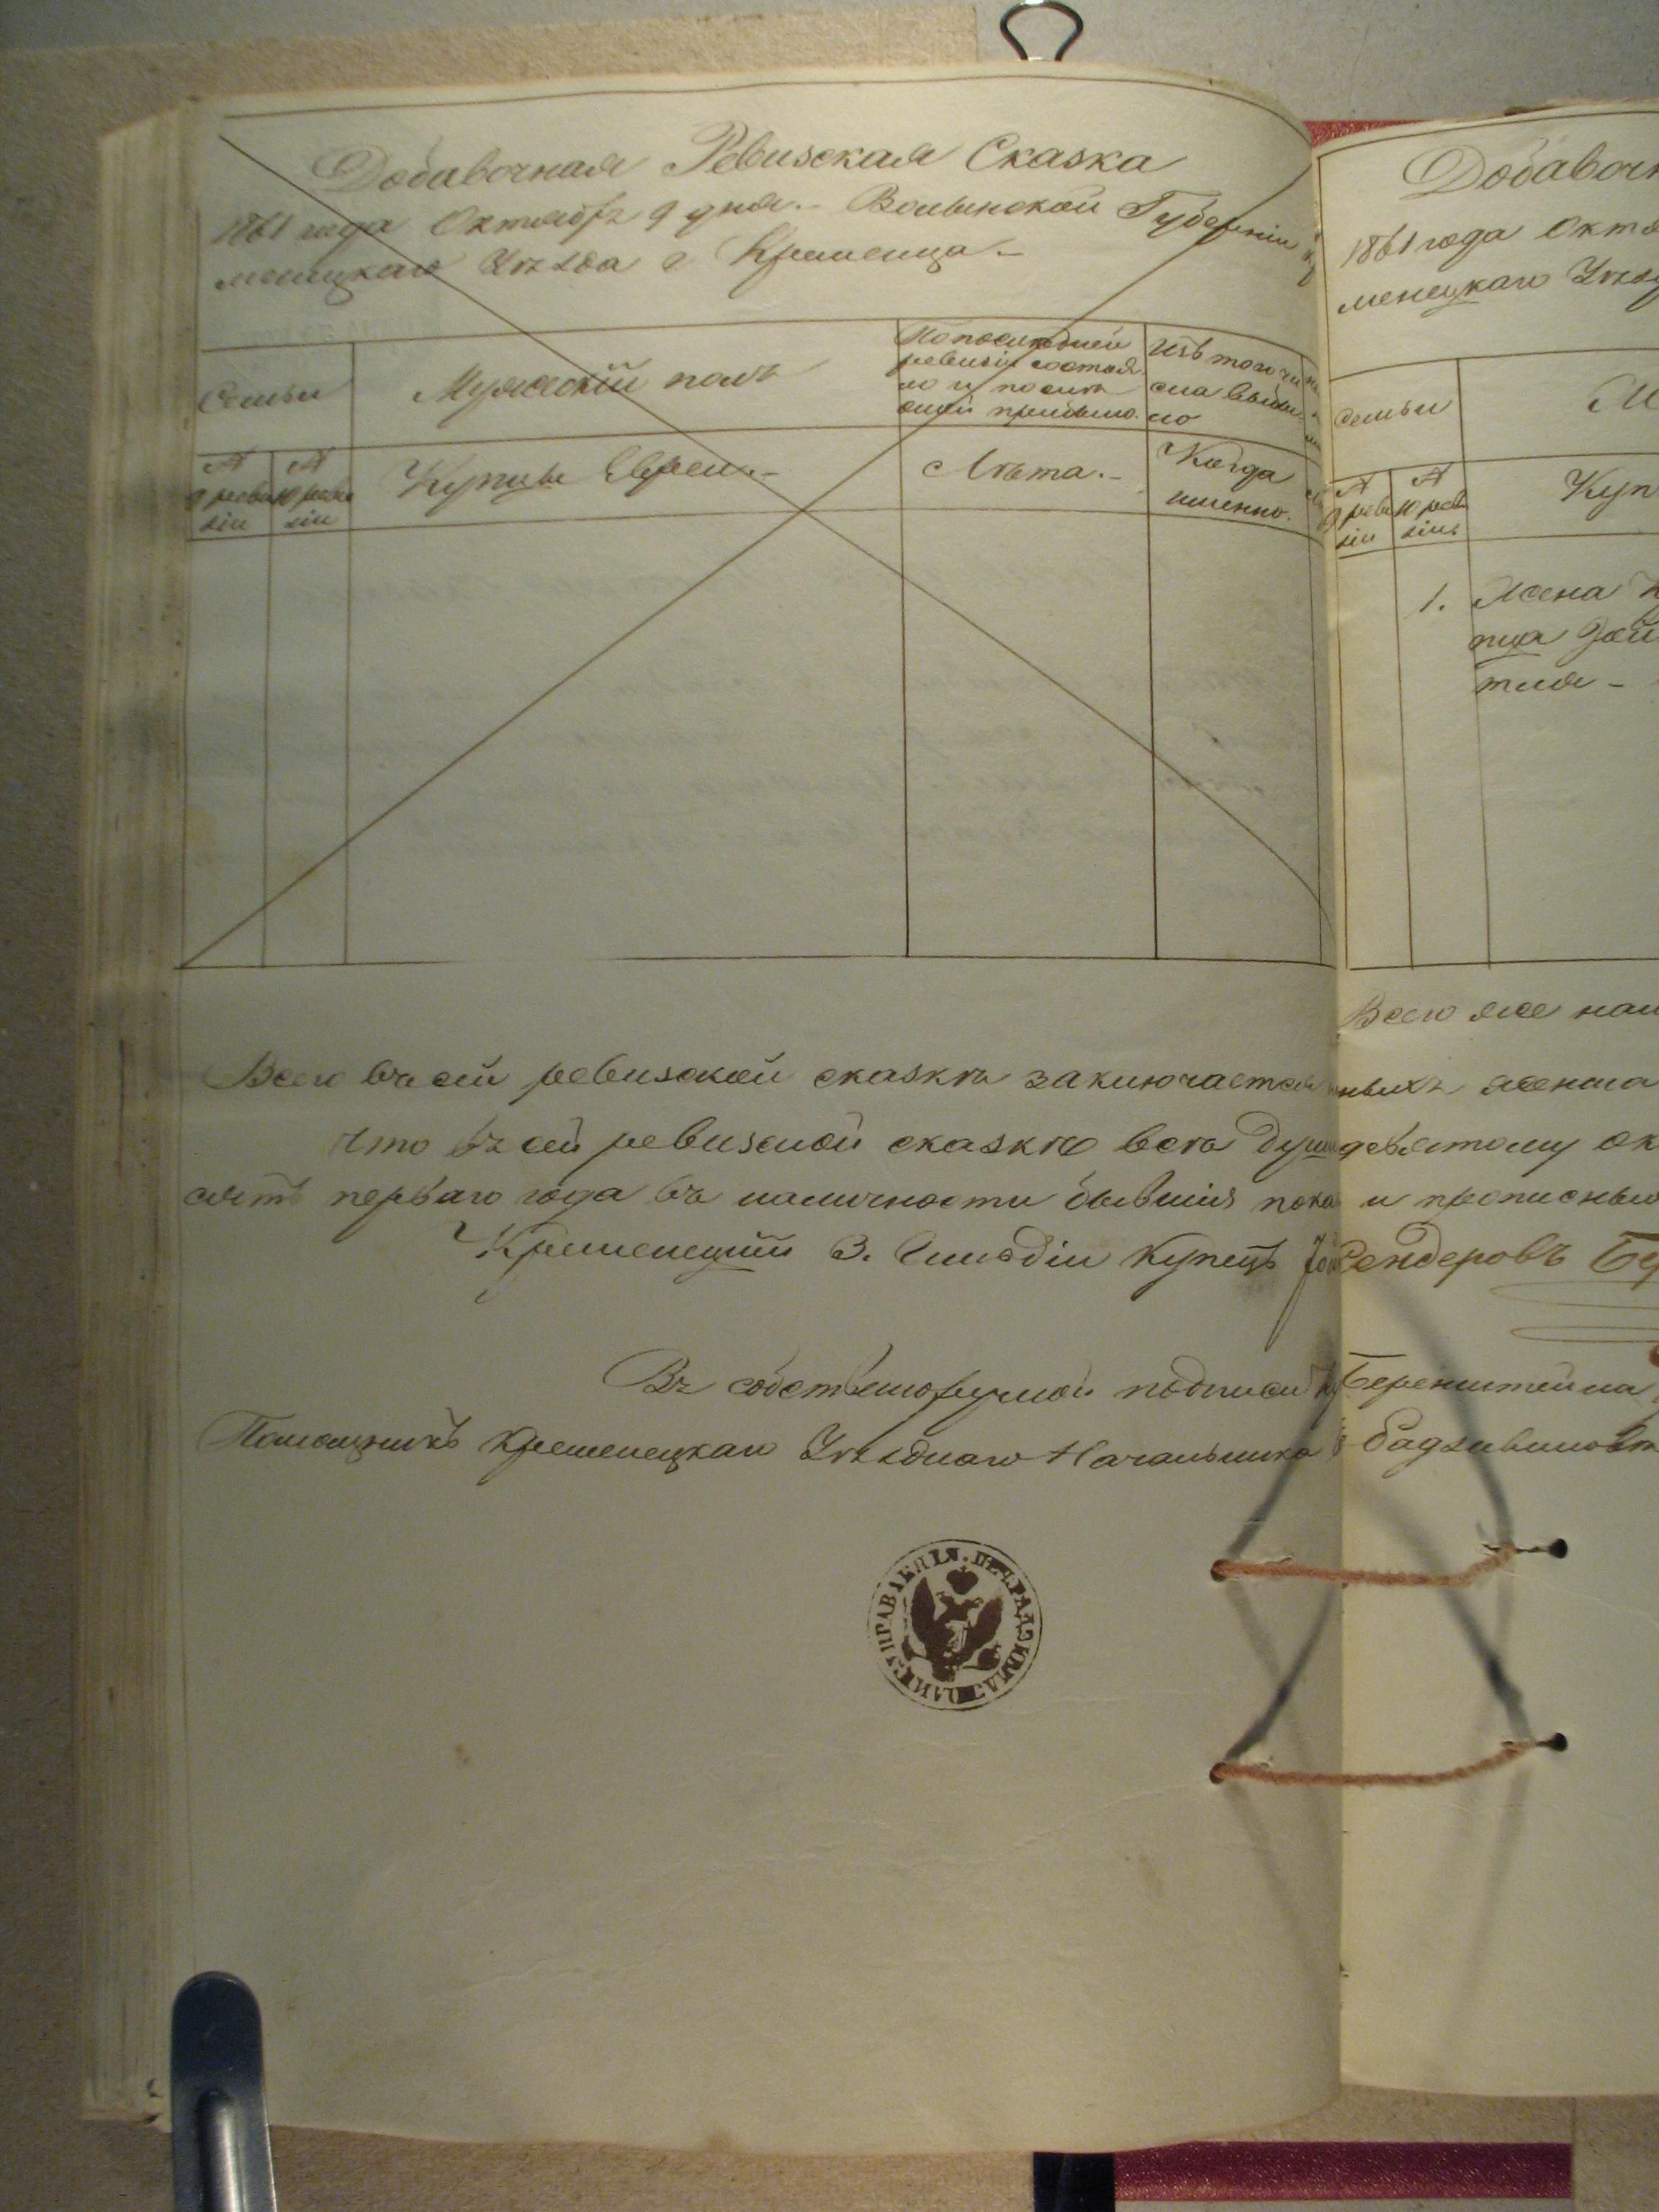 Добавочная Ревизская Сказка
1861 года Октября 9 дня. Волынской Губернии Кре
менецкаго Уѣзда г Кременца.
Семьи
Мужескій полъ
По послѣдней
ревизіи состоя
ло и послѣ
оной прибыло.
Изъ того чи
сла выбы
ло
№
9 реви
зіи
№
10 реви
зіи
Купцы Евреи.
Лѣта.
Когда
именно.
Всего въ сей ревизской сказкѣ заключается
Что въ сей ревизской сказкѣ всѣ души
сятъ перваго года въ наличности бывшія пока
Кременецкій 3. Гильдіи Купецъ
Въ собственноручной подписи
Помощникъ Кременецкаго Уѣзднаго Начальника
Добавочн
1861 года Октя
менецкаго Уѣзд
Семьи
М
№
9 реви
зіи
№
10 реви
зіи
Куп
1. Жена К
пца
Всего же нал
ныхъ женска
девятому ок
и прописных
Сендеровъ Бе
Беренштейна